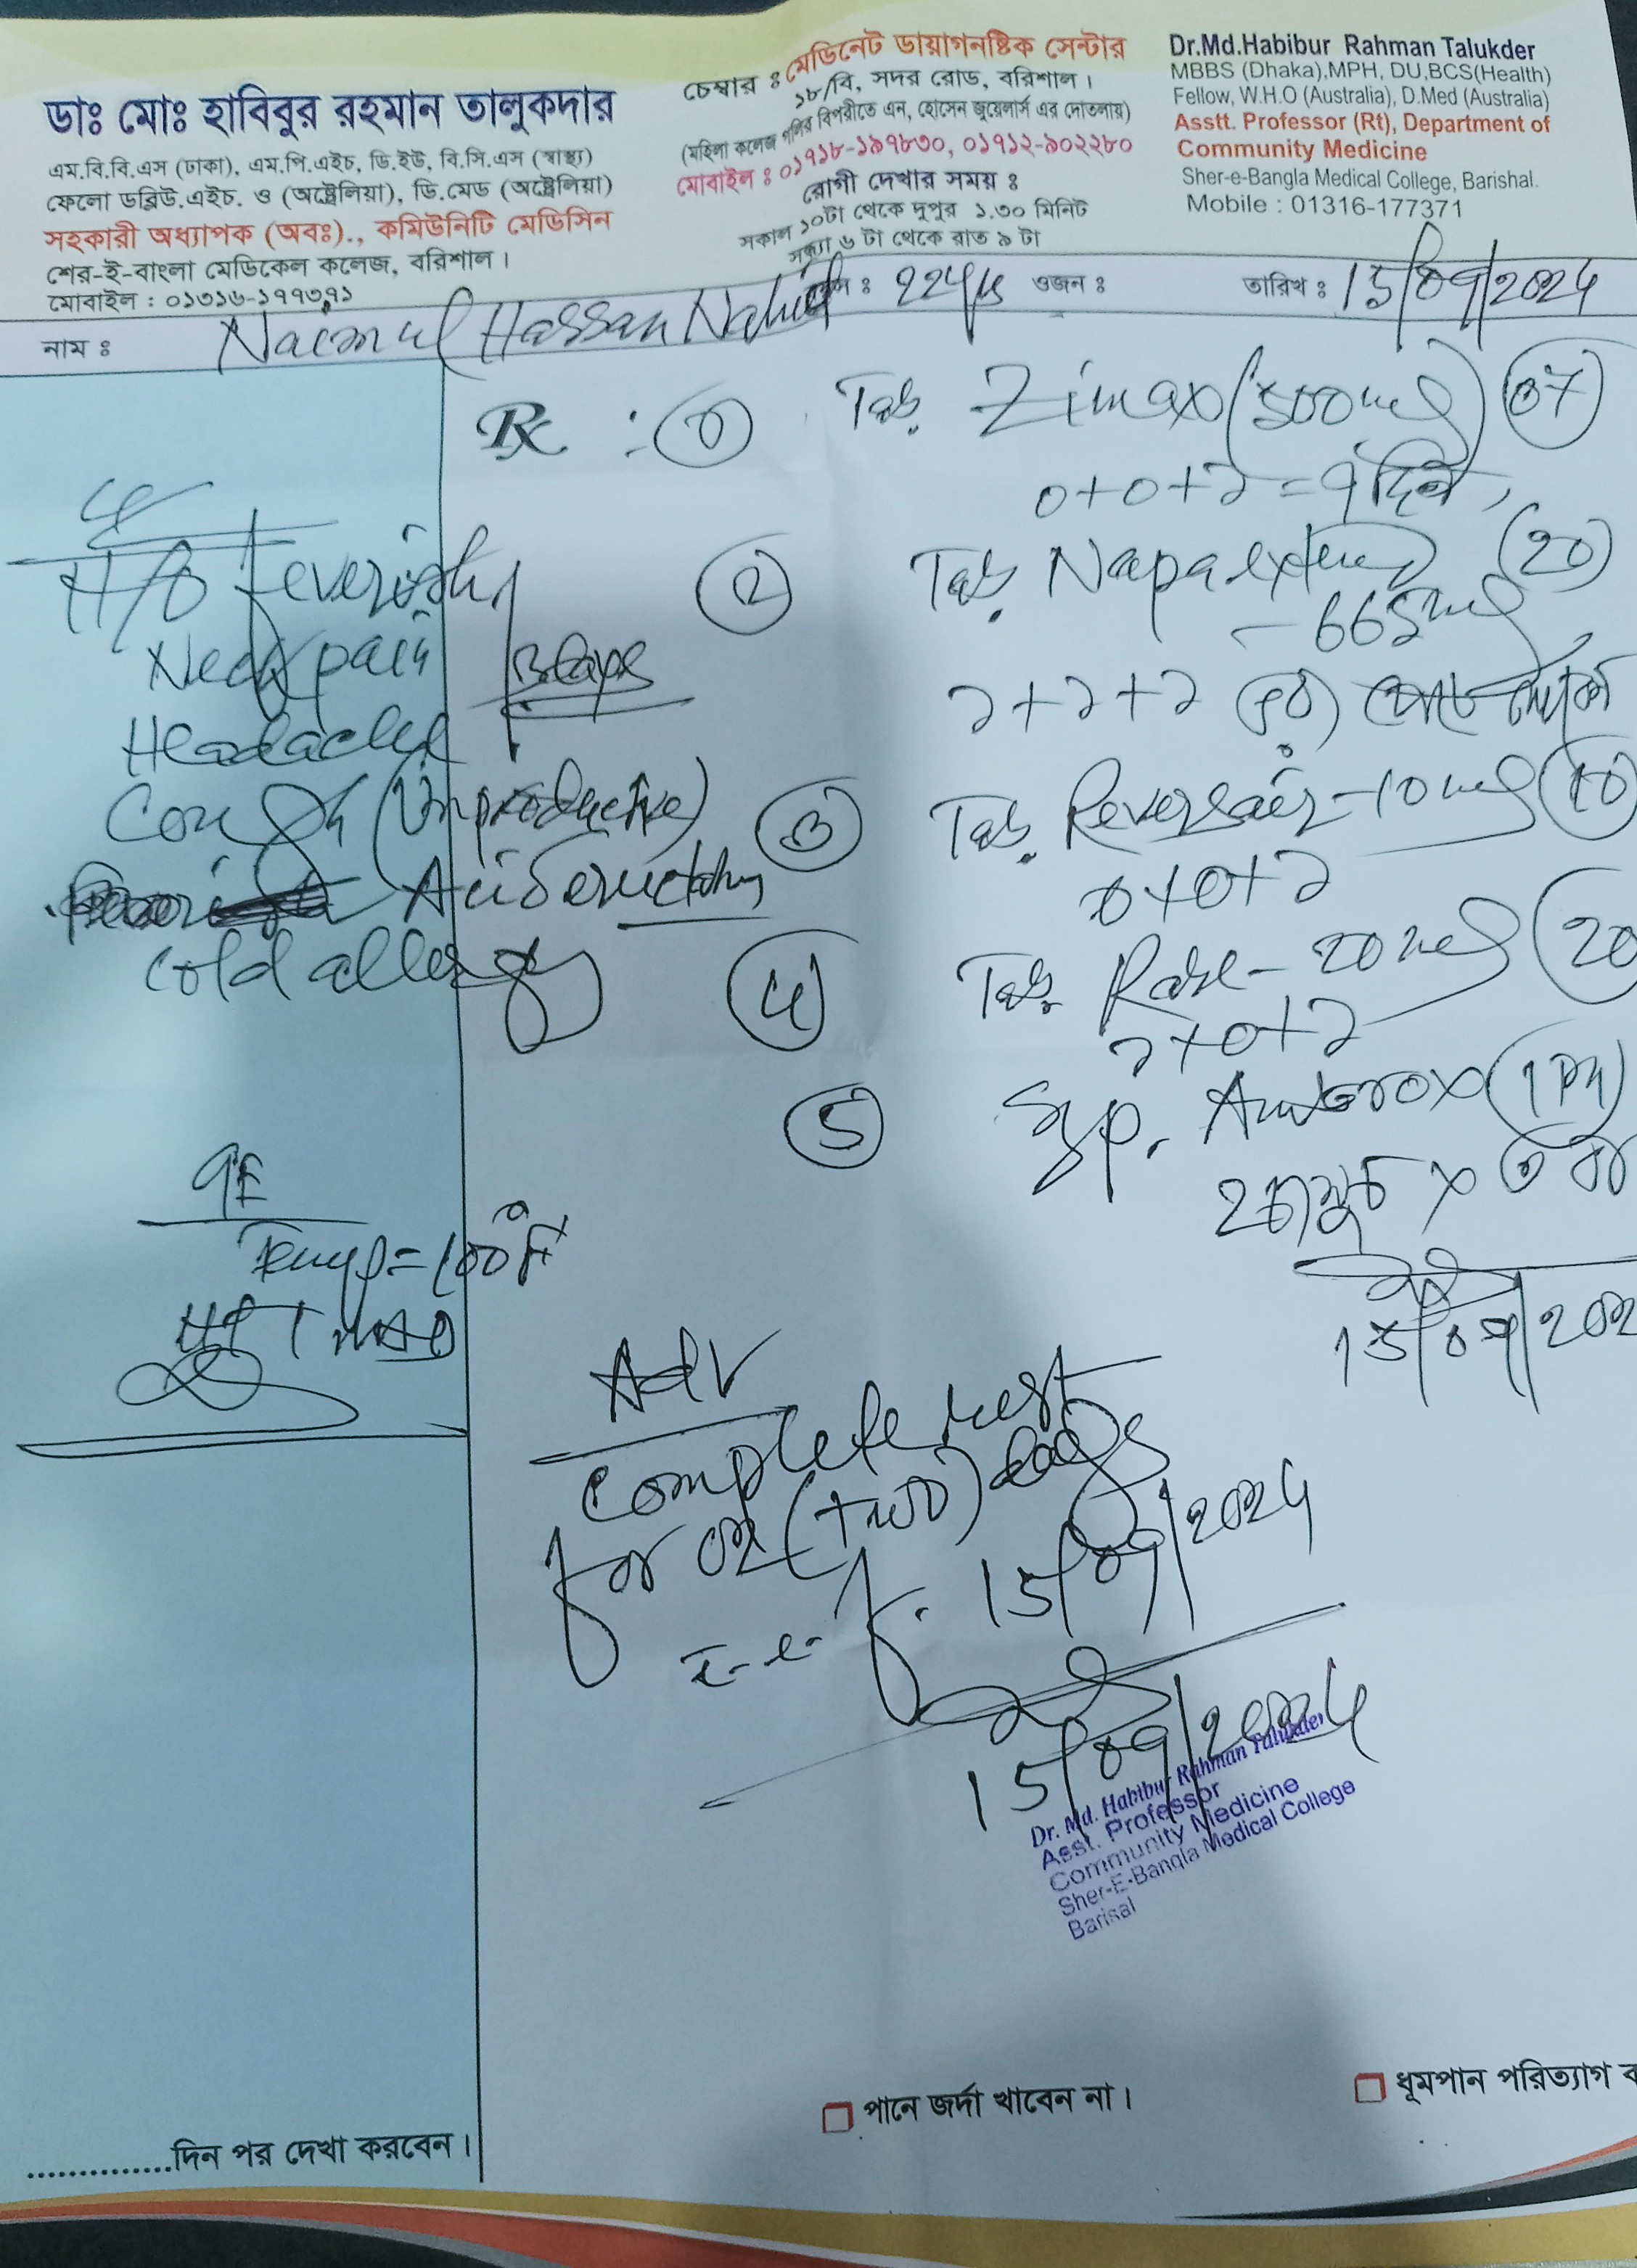 ডাঃ মোঃ হাবিবুর রহমান তালুকদার
এম.বি.বি.এস (ঢাকা), এম.পি.এইচ, ডি.ইউ, বি.সি.এস (স্বাস্থ্য)
ফেলো ডব্লিউ.এইচ. ও (অষ্ট্রেলিয়া), ডি.মেড (অষ্ট্রেলিয়া)
সহকারী অধ্যাপক (অবঃ)., কমিউনিটি মেডিসিন
শের-ই-বাংলা মেডিকেল কলেজ, বরিশাল।
মোবাইল : ০১৩১৬-১৭৭৩৭১
চেম্বার ঃ মেডিনেট ডায়াগনষ্টিক সেন্টার
১৮/বি, সদর রোড, বরিশাল।
(মহিলা কলেজ গলির বিপরীতে এন, হোসেন জুয়েলার্স এর দোতলায়)
মোবাইল ঃ ০১৭১৮-১৯৭৮৩০, ০১৭১২-৯০২২৮০
রোগী দেখার সময় ঃ
সকাল ১০টা থেকে দুপুর ১.৩০ মিনিট
সন্ধ্যা ৬ টা থেকে রাত ৯ টা
Dr.Md.Habibur Rahman Talukder
MBBS (Dhaka),MPH, DU,BCS(Health)
Fellow, W.H.O (Australia), D.Med (Australia)
Asstt. Professor (Rt), Department of
Community Medicine
Sher-e-Bangla Medical College, Barishal.
Mobile : 01316-177371
নাম ঃ Naimul Hassan Nahid 22yrs ওজন ঃ তারিখ ঃ 15/09/2024
Rx : 1 Tab. Zimax (500mg) 07
০+০+১ = ৭ দিন,
H/O feverish
Neck pain 3 days
Headache
Cough (Unproductive)
Acid eructation
Cold allergy
2 Tab. Napa extend (20)
- 665mg
১+১+১
3 Tab. Reversair-10mg (10)
০+০+১
4 Tab. Rabe-20mg (20
১+০+১
5 Syp. Ambrox (1Ph)
২ চামুচ × ৩ বার
15/09/202
O/E
Temp=100°F
Adv
Complete rest
for 02 (two) days
w.e.f. 15/09/2024
15/09/2024
Dr. Md. Habibur Rahman Talukder
Asst. Professor
Community Medicine
Sher-E-Bangla Medical College
Barisal
পানে জর্দা খাবেন না।
ধূমপান পরিত্যাগ ক
..............দিন পর দেখা করবেন।